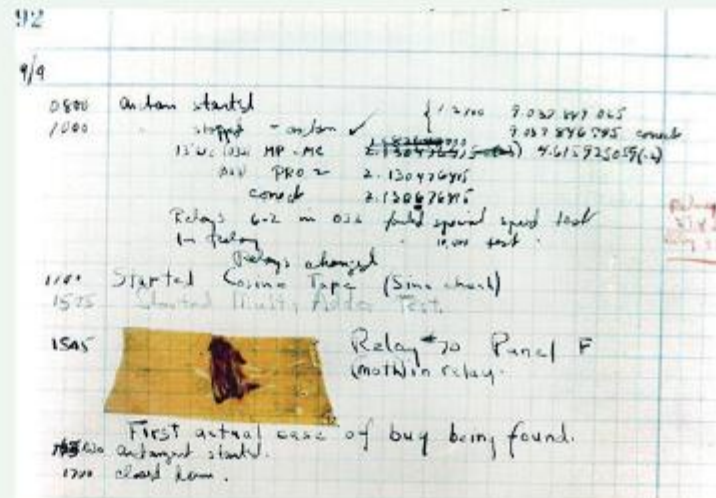 92
9/9
0800 antan started
1000 " stopped - antan ✓ { 1.2700 9.037 847 025
9.037 846 795 correct
13"uc (032) MP-MC 2.130476415 4.615925059(-2)
033 PRO 2 2.130476415
correct 2.130676415
Relays 6-2 in 033 failed special speed test
in relay " 10.000 test.
Relays changed
1100 Started Cosine Tape (Sine check)
1525 Started Multy Adder Test.
1545 Relay #70 Panel F
(moth) in relay.
First actual case of bug being found.
antangent started.
1700 closed down.